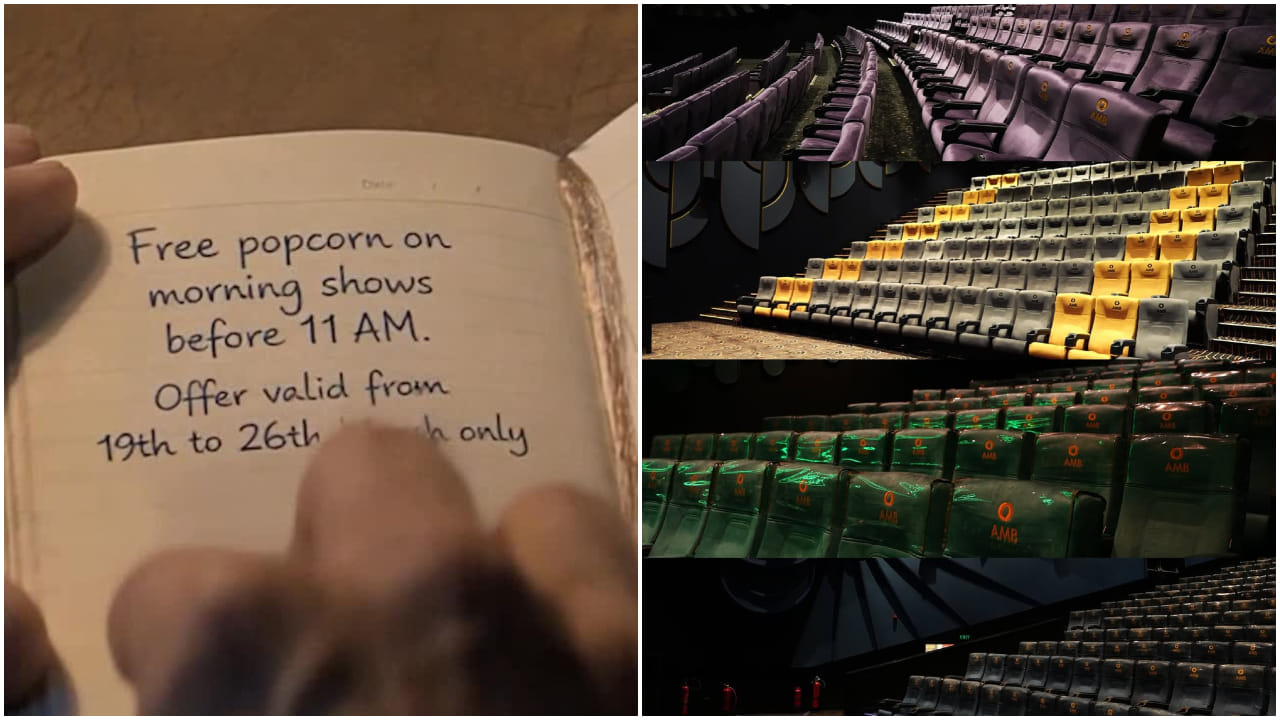 Date: / /
Free popcorn on
morning shows
before 11 AM.
Offer valid from
19th to 26th only
AMB
AMB
AMB
AMB
AMB
AMB
AMB
EXIT